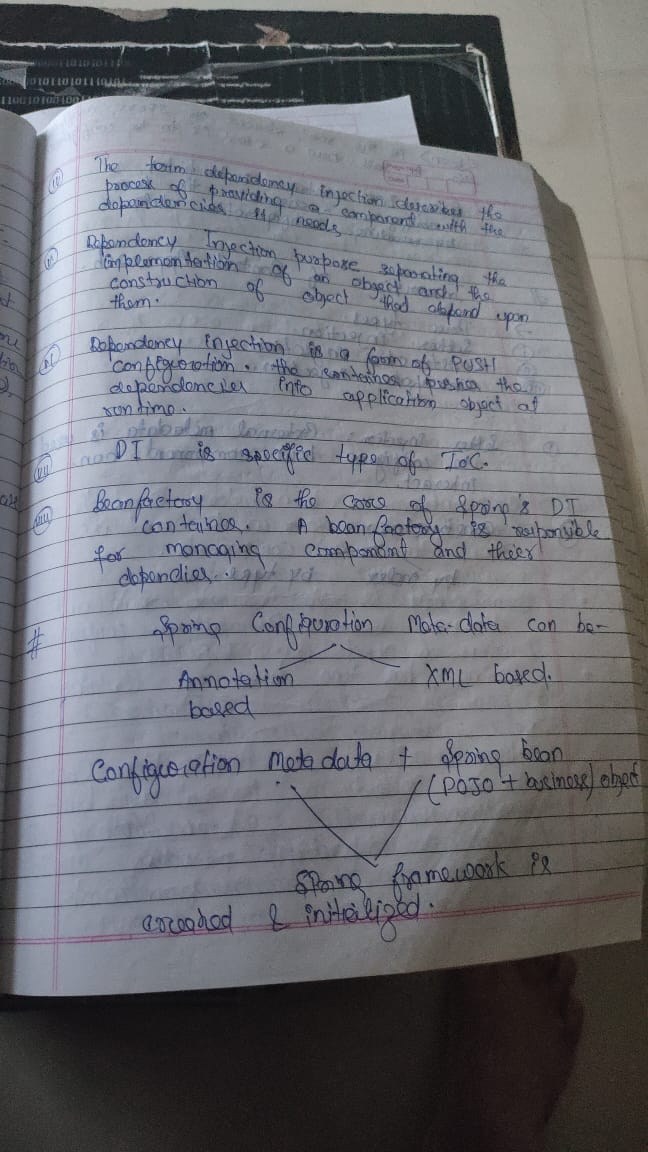 The term dependency injection describes the
process of providing a component with the
dependencies it needs
Dependency Injection purpose separating the
implementation of an object and the
construction of object that depend upon
them.
Dependency injection is a form of PUSH
configuration. the container pushes the
dependencies into application object at
runtime.
DI is specific type of IoC.
Beanfactory is the core of Spring's DI
container. A beanfactory is responsible
for managing component and their
dependies.
# Spring Configuration Meta-data can be-
Annotation XML based.
based
Configuration Meta data + Spring bean
(POJO + business) object
Spring framework is
created & initialized.